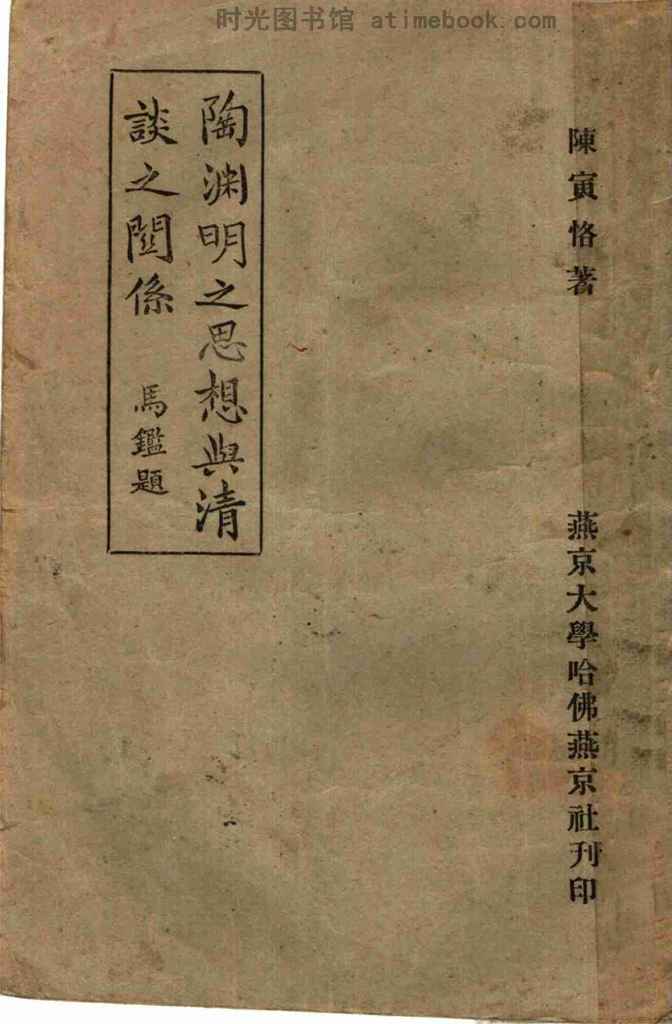 时光图书馆 atimebook.com
陳寅恪著
燕京大學哈佛燕京社刋印
陶渊明之思想與清
談之関係
馬鑑題